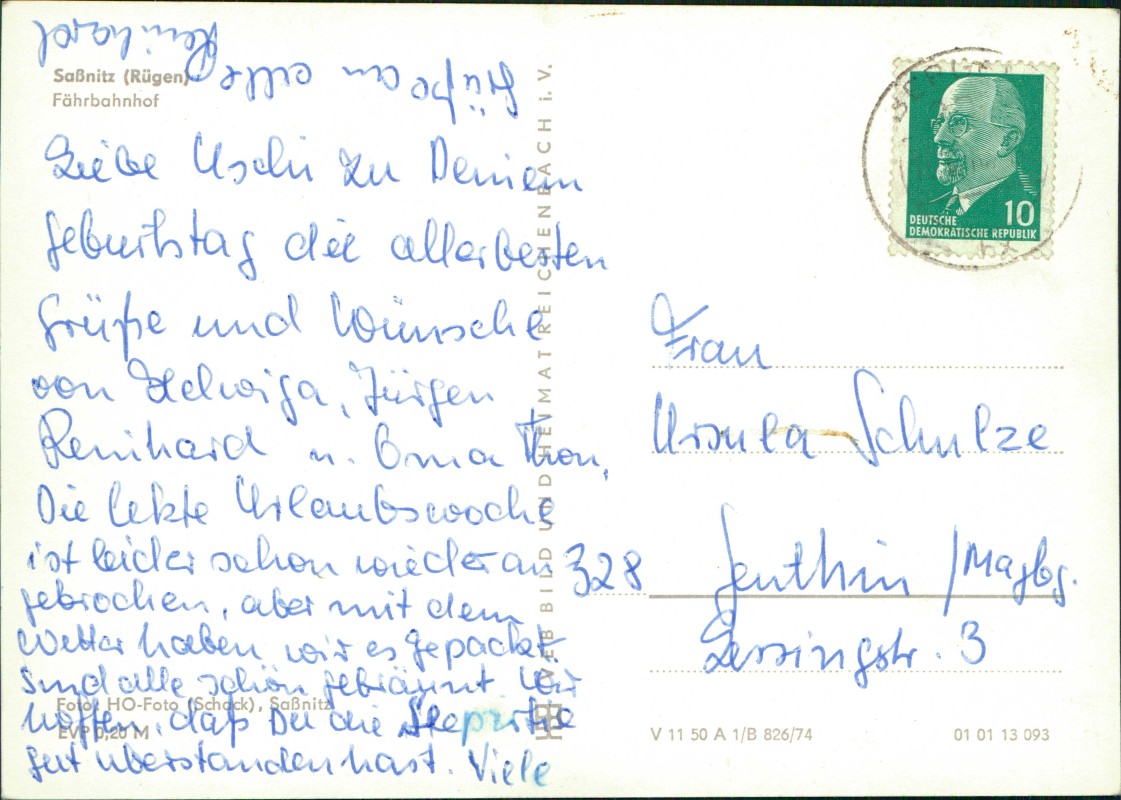 Saßnitz (Rügen)
Fährbahnhof
Liebe Uschi zu Deinem
Geburtstag die allerbesten
Grüße und Wünsche
von Helwiga, Jürgen
Reinhard u. Oma Thon,
Die letzte Urlaubswoche
ist leider schon wieder an
gebrochen, aber mit dem
Wetter haben wir es gepackt.
Sind alle schön gebräunt. Wir
hoffen, daß Du die
gut überstanden hast. Viele
Grüße an alle
Reinhard
Foto: HO-Foto (Schack), Saßnitz
EVP 0,20 M
VEB BILD UND HEIMAT REICHENBACH i. V.
BERLIN
DEUTSCHE
DEMOKRATISCHE REPUBLIK
10
Frau
Ursula Schulze
328 Genthin / Magbg.
Lessingstr. 3
V 11 50 A 1/B 826/74
01 01 13 093